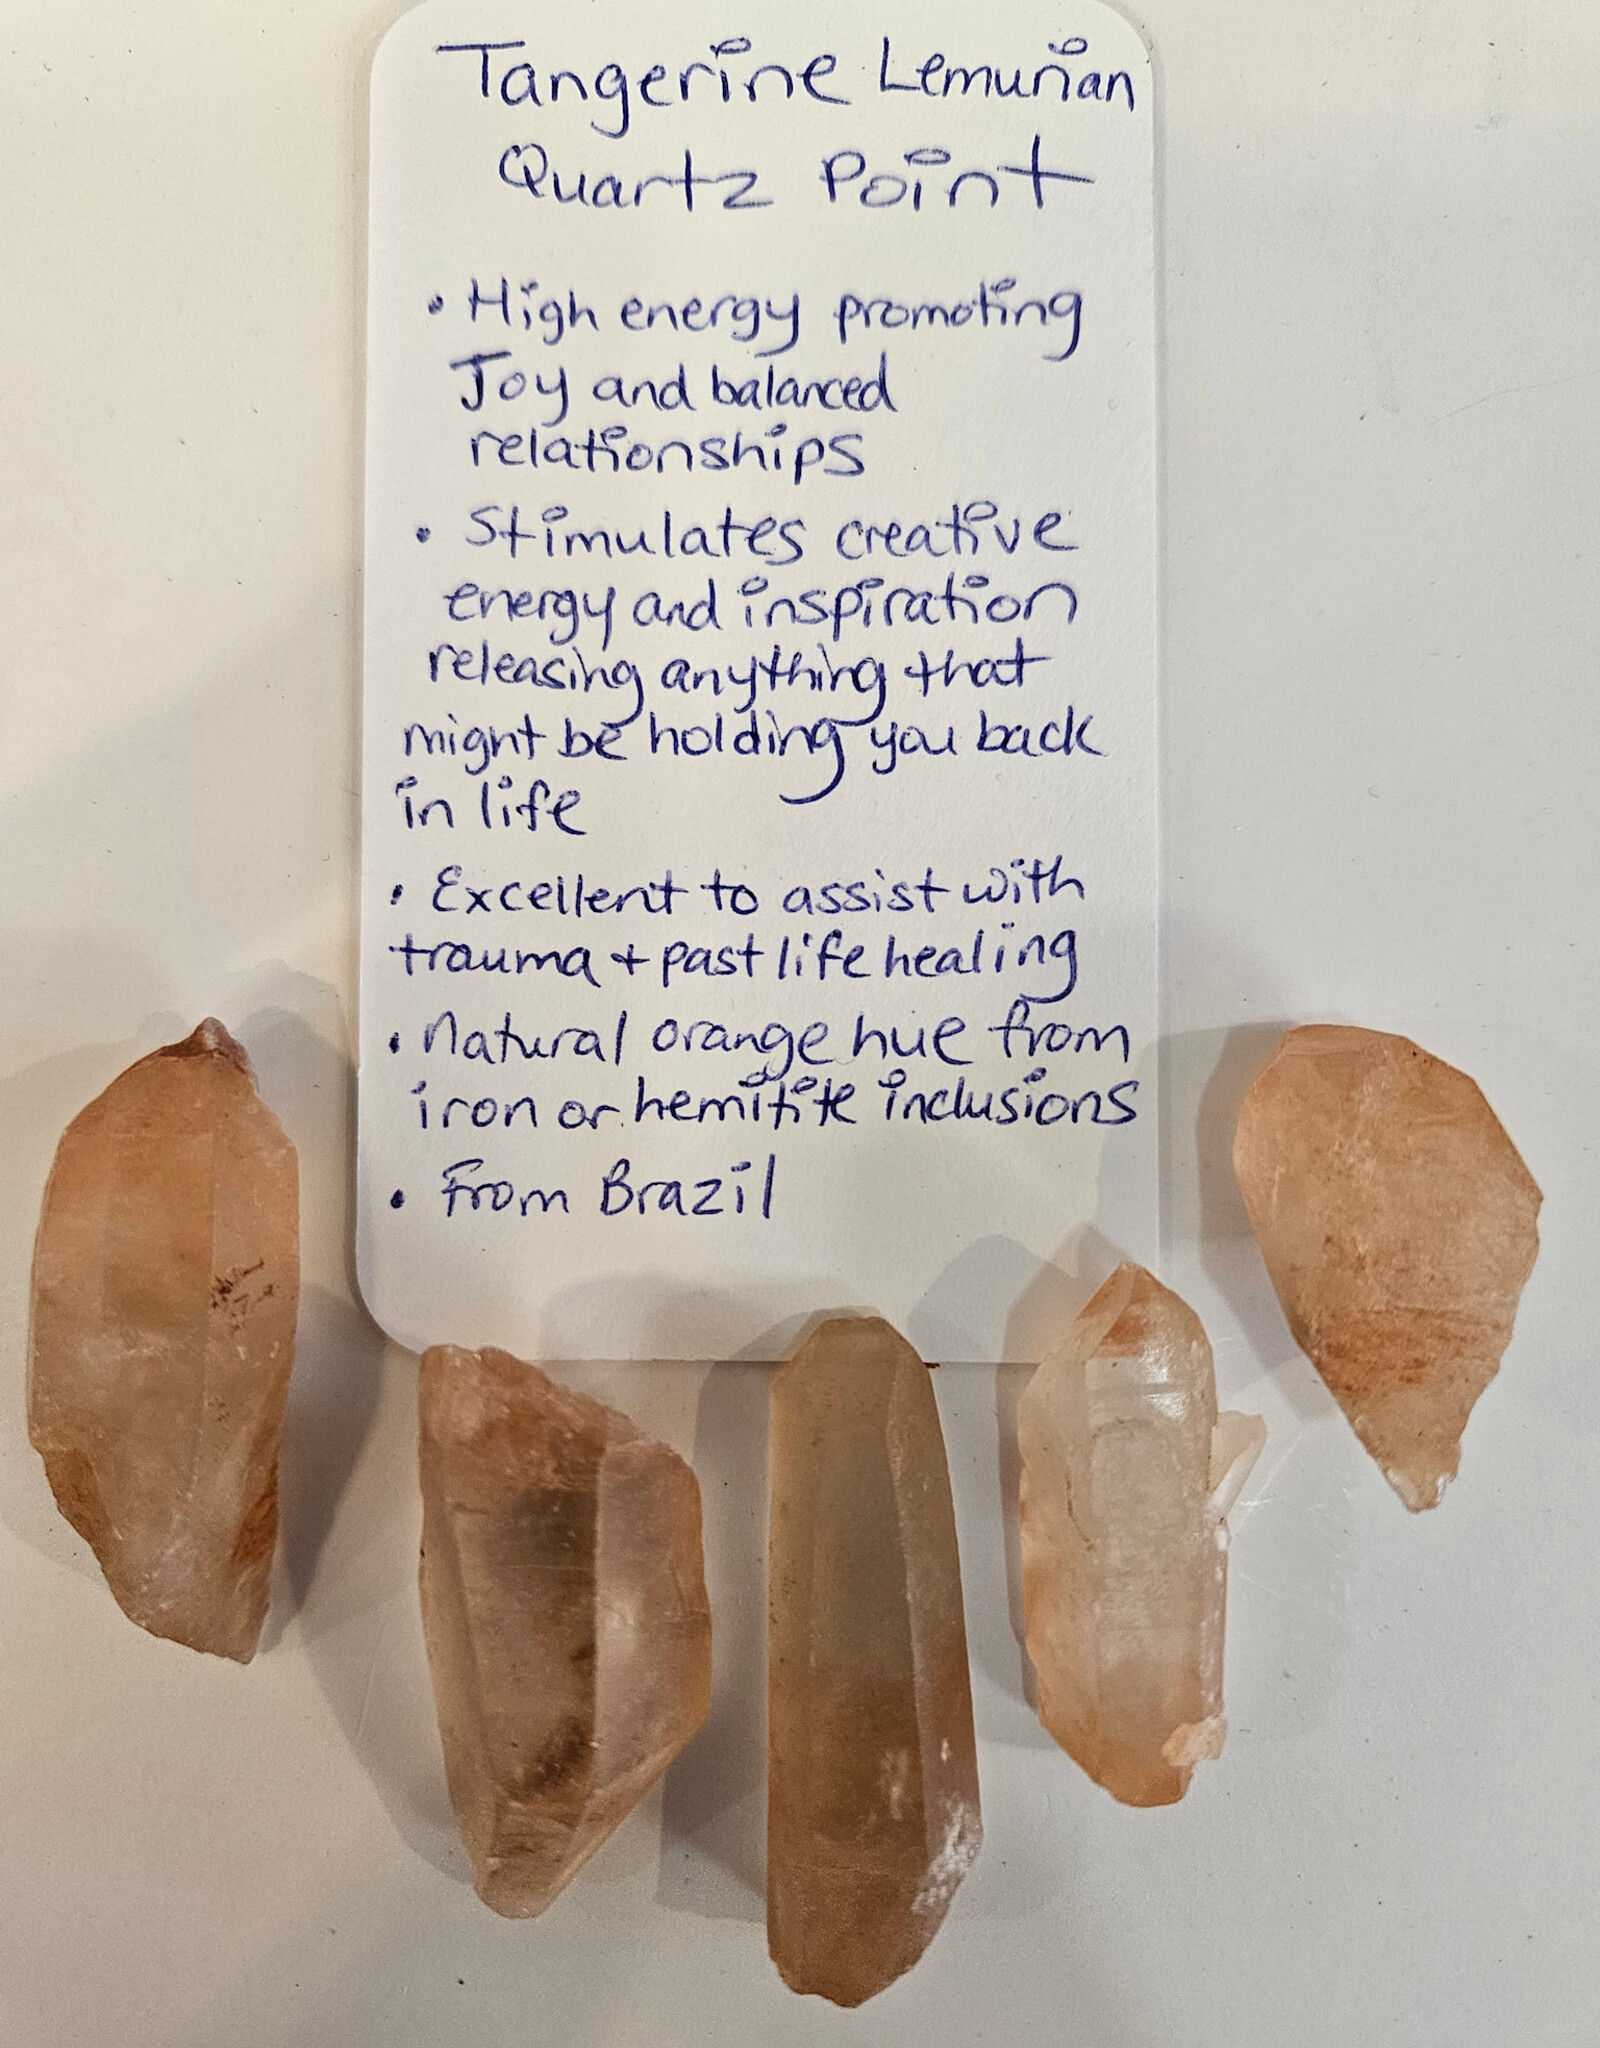 Tangerine Lemurian
Quartz Point
• High energy promoting
Joy and balanced
relationships
• Stimulates creative
energy and inspiration
releasing anything that
might be holding you back
in life
• Excellent to assist with
trauma + past life healing
• Natural orange hue from
iron or hemitite inclusions
• From Brazil